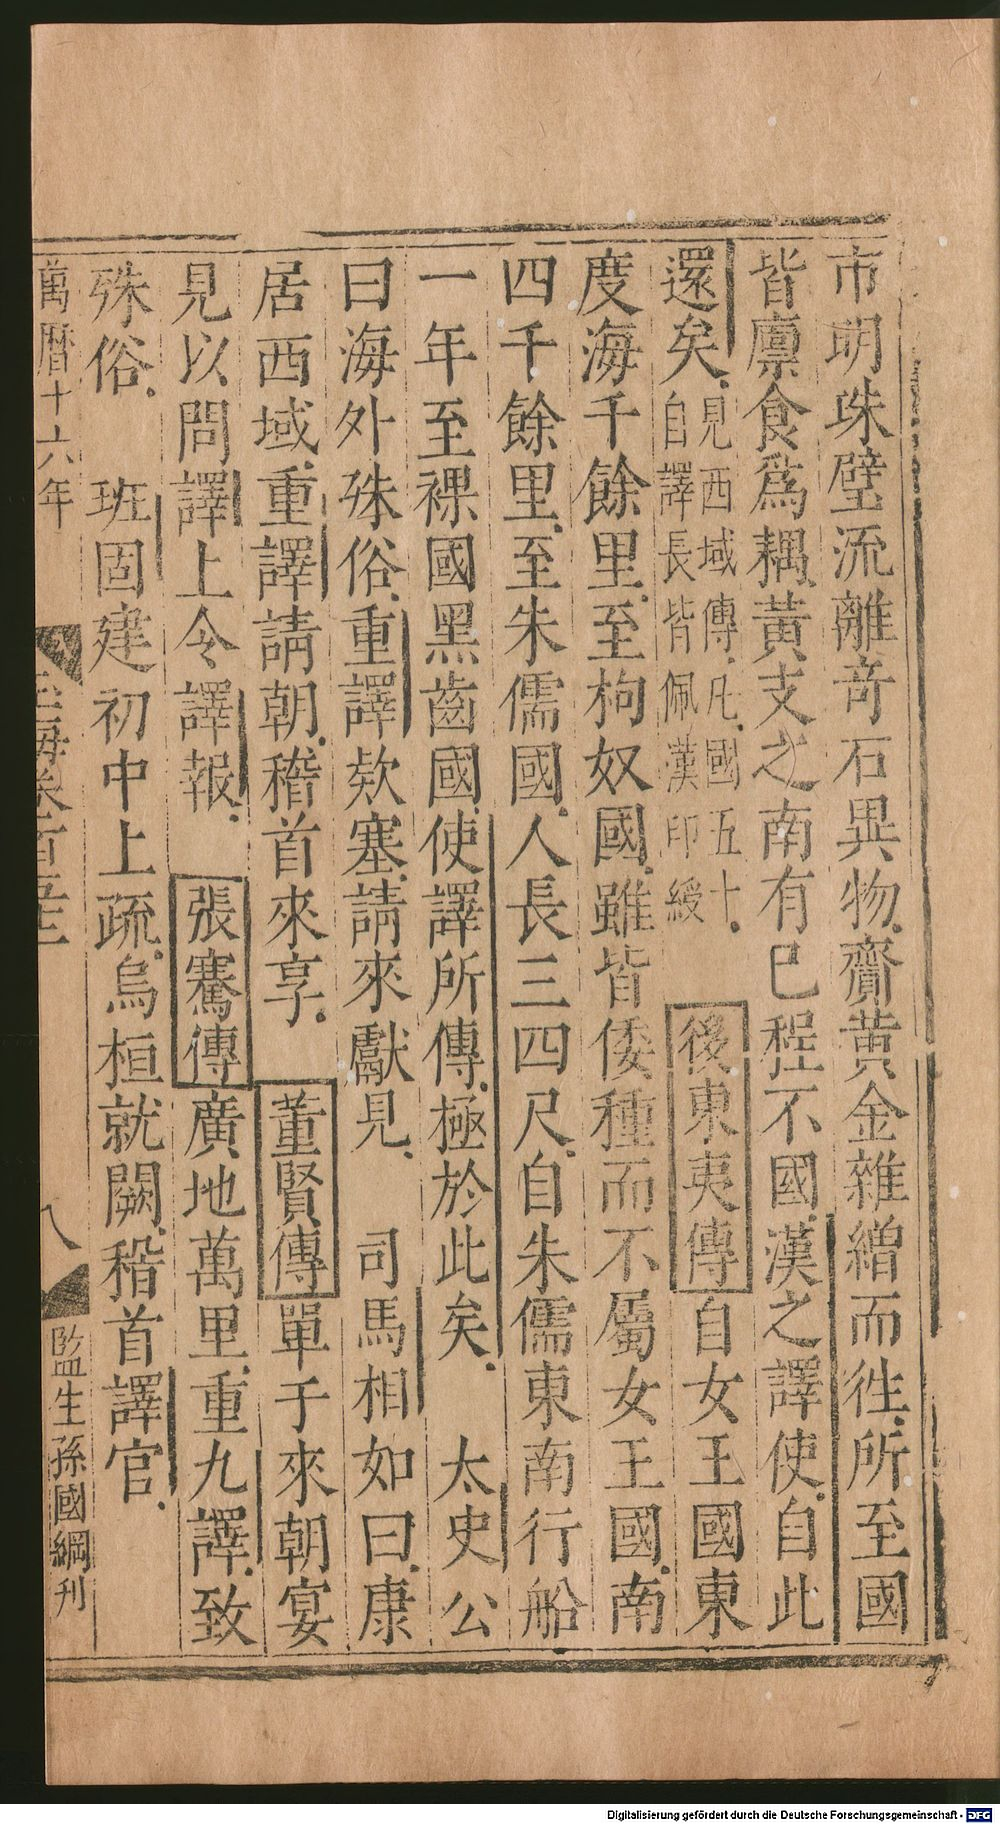 市明珠璧流離竒石異物齎黄金雜繒而徃所至國
皆廪食爲耦黃支之南有巳程不國漢之譯使自此
還矣見西域傳凡國五十自譯長皆佩漢印綬後東夷傳自女王國東
度海千餘里至枸奴國雖皆倭種而不屬女王國南
四千餘里至朱儒國人長三四尺自朱儒東南行船
一年至裸國黑齒國使譯所傳極於此矣 太史公
曰海外殊俗重譯欵塞請來獻見 司馬相如曰康
居西域重譯請朝稽首來享董賢傳單于來朝宴
見以問譯上令譯報張騫傳廣地萬里重九譯致
殊俗 班固建初中上疏烏桓就闕稽首譯官
萬曆十六年 八 監生孫國綱刊
Digitalisierung gefördert durch die Deutsche Forschungsgemeinschaft - DFG